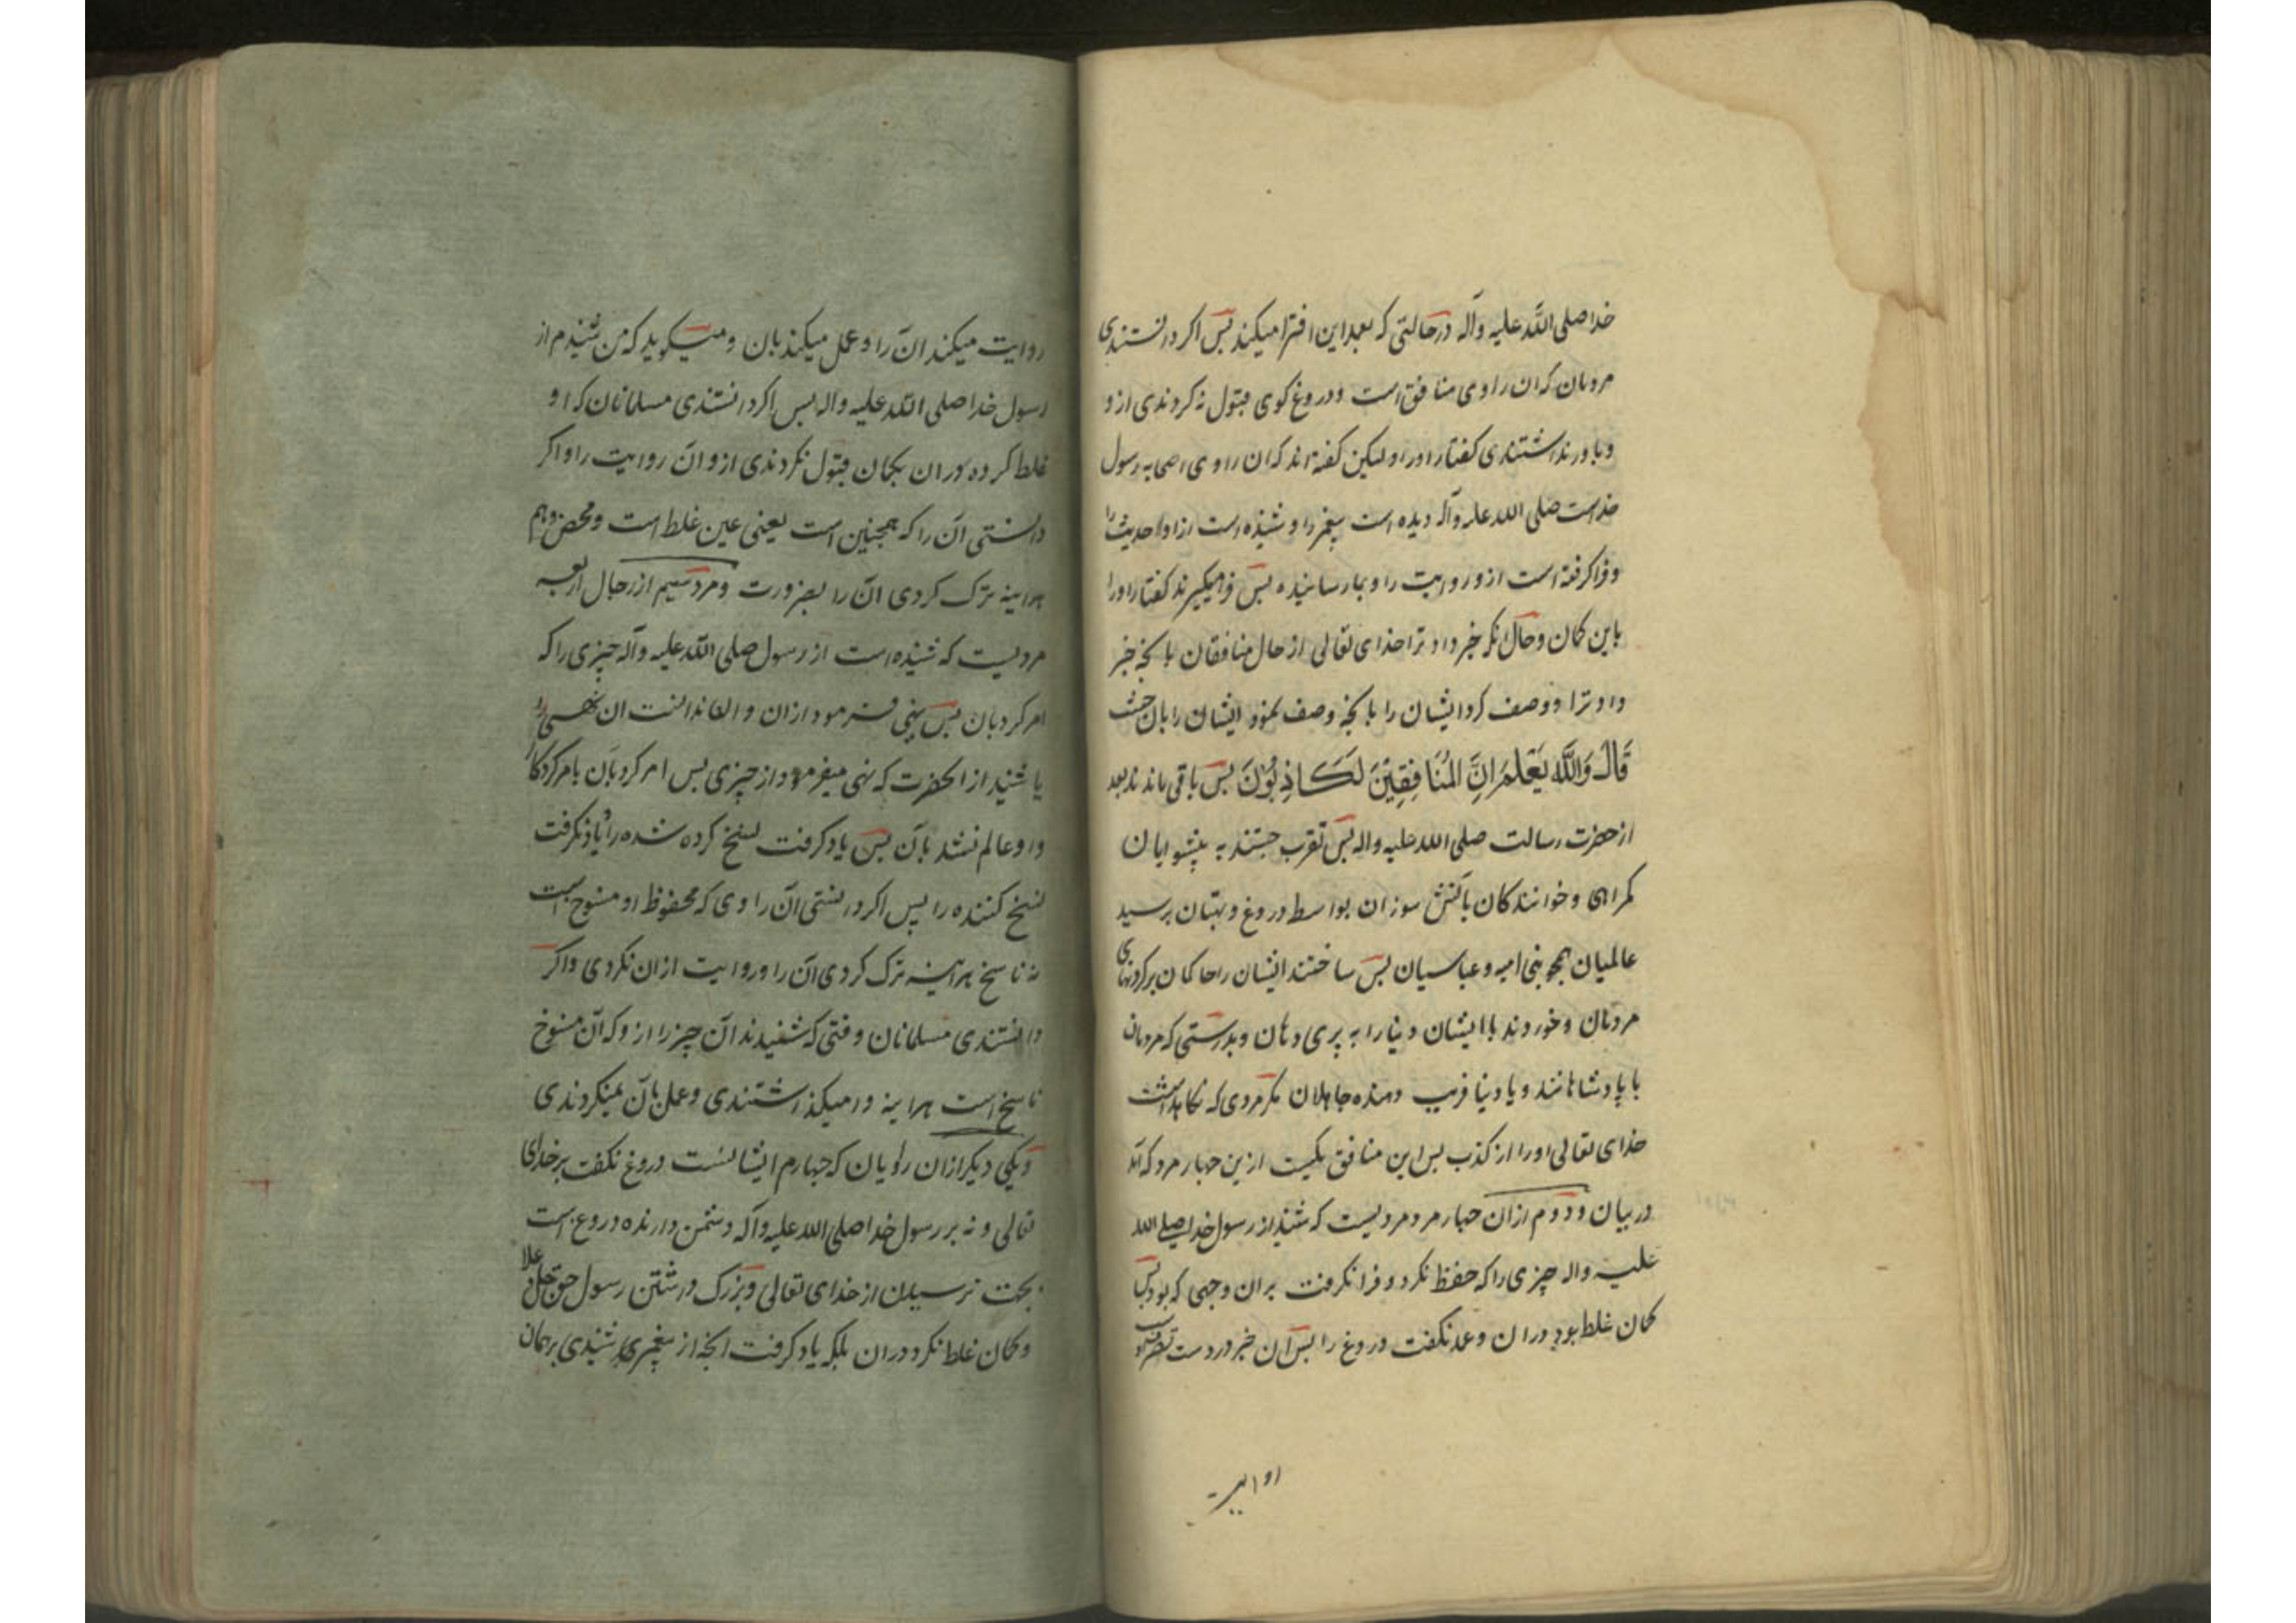 خدا صلی الله علیه وآله درحالتی که بعد این افترا میکند پس اکر دانستندی
مردمان که ان راوی منافق است ودروغ کوی قبول نه کردندی ازو
وباور نداشتندی کفتار اورا ولیکن کفته اند که ان راوی اصحابه رسول
خداست صلی الله علیه وآله دیده است پیغمبر را وشنیده است ازاو احدیث را
وفرا کرفته است ازو روایت را وبما رسانیده پس فرامیکیرند کفتار اورا
باین کمان وحال انکه خبر داد ترا خدای تعالی از حال منافقان بانچه خبر
داد ترا ووصف کرد ایشان را بانچه وصف نمود ایشان را بان حیث
قَالَ وَاللَّه يَعْلَمُ اِنَّ المُنَافِقِيْنَ لَكَاذِبُوْنَ پس باقی ماندند بعد
از حضرت رسالت صلی الله علیه واله پس تقرب جستند به پیشوایان
کمراهی وخوانندکان بآتش سوزان بواسطه دروغ وبهتان برسید
عالمیان همچو بنی امیه وعباسیان پس ساختند ایشان را حاکمان بر کردنهای
مردمان وخوردند با ایشان دنیا را به پری دهان وبدرستی که مردمان
با پادشاهانند وبا دنیا فریب دهنده جاهلان مکر مردی که نکاهداشت
خدای تعالی اورا از کذب پس این منافق یکیست ازین چهار مرد که آمد
در بیان ودوم ازان چهار مرد مردیست که شنید از رسول خدا صلی الله
علیه واله چیزی را که حفظ نکرد وفرا نکرفت بران وجهی که بود پس
کمان غلط بود دران وعمد نکفت دروغ را پس آن خبر در دست تصرف
او
روایت میکند ان را وعمل میکند بان ومیکوید که من شنیدم از
رسول خدا صلی الله علیه واله پس اکر دانستندی مسلمانان که او
غلط کرده دران بکمان قبول نکردندی ازو ان روایت را واکر
دانستی ان را که همچنین است یعنی عین غلط است ومحض وهم
هراینه ترک کردی ان را بضرورت ومرد سیم از رجال اربعه
مردیست که شنیده است از رسول صلی الله علیه وآله چیزی را که
امر کرد بان پس نهی فرمود ازان و ندانست ان نهی را
یا شنید از انحضرت که نهی میفرمود از چیزی پس امر کرد بان بامر کردکار
واو عالم نشد بان پس یاد کرفت نسخ کرده شده را ویاد نکرفت
نسخ کننده را پس اکر دانستی آن راوی که محفوظ او منسوخ است
نه ناسخ هراینه ترک کردی ان را وروایت ازان نکردی واکر
دانستندی مسلمانان وقتی که شنیدند آن چیز را ازو که آن منسوخ
ناسخ است هراینه وامیکذاشتندی وعمل بان نمیکردندی
ویکی دیکر ازان راویان که چهارم ایشانست دروغ نکفت بر خدای
تعالی ونه بر رسول خدا صلی الله علیه وآله دشمن دارنده دروغ است
بجهت ترسیدن از خدای تعالی وبزرک داشتن رسول حق جل وعلا
وکمان غلط نکرد دران بلکه یاد کرفت انچه از پیغمبر شنیدی برهمان